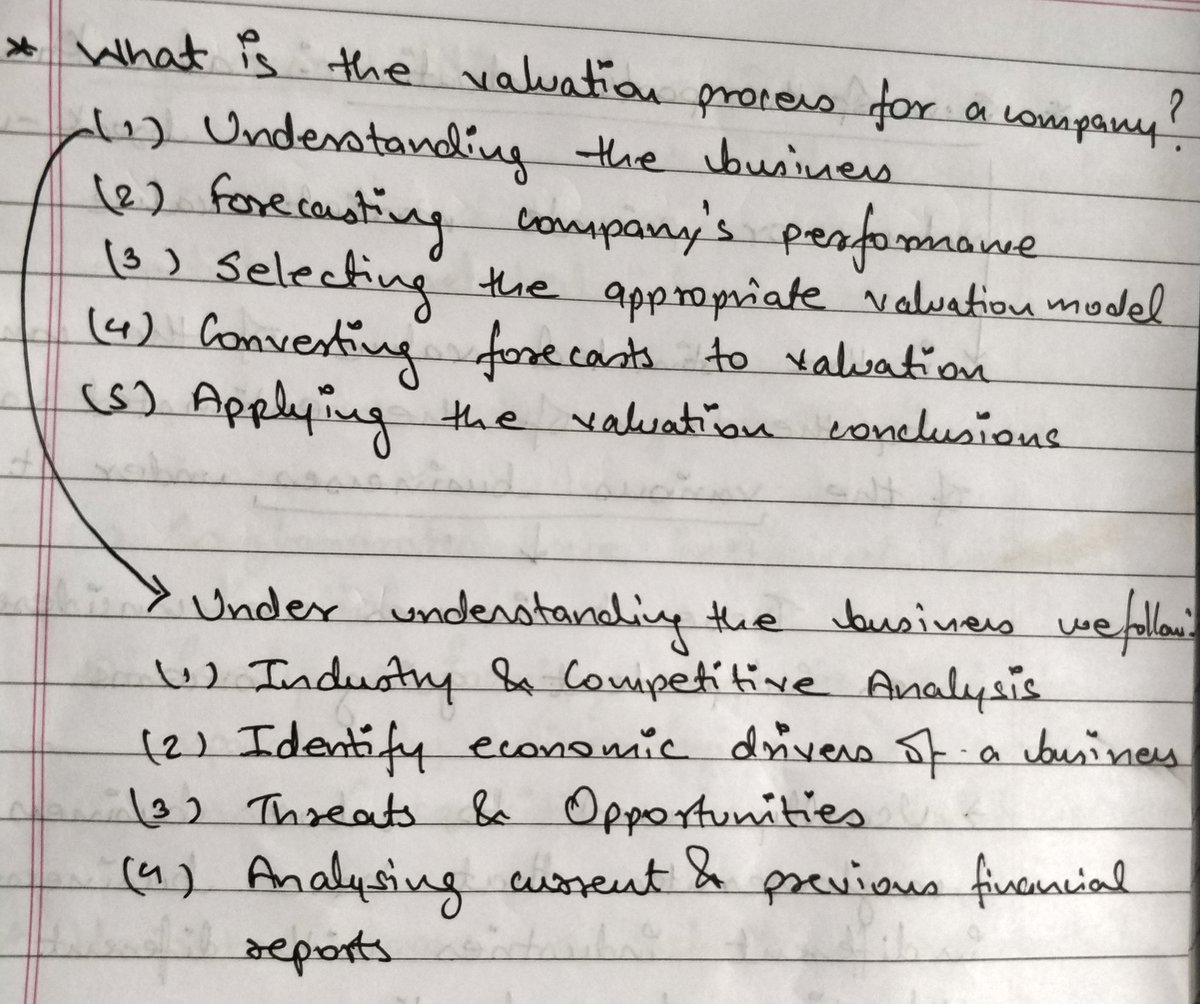 * What is the valuation process for a company?
(1) Understanding the business
(2) Forecasting company's performance
(3) Selecting the appropriate valuation model
(4) Converting forecasts to valuation
(5) Applying the valuation conclusions
Under understanding the business we follow:
(1) Industry & Competitive Analysis
(2) Identify economic drivers of a business
(3) Threats & Opportunities
(4) Analysing current & previous financial
reports